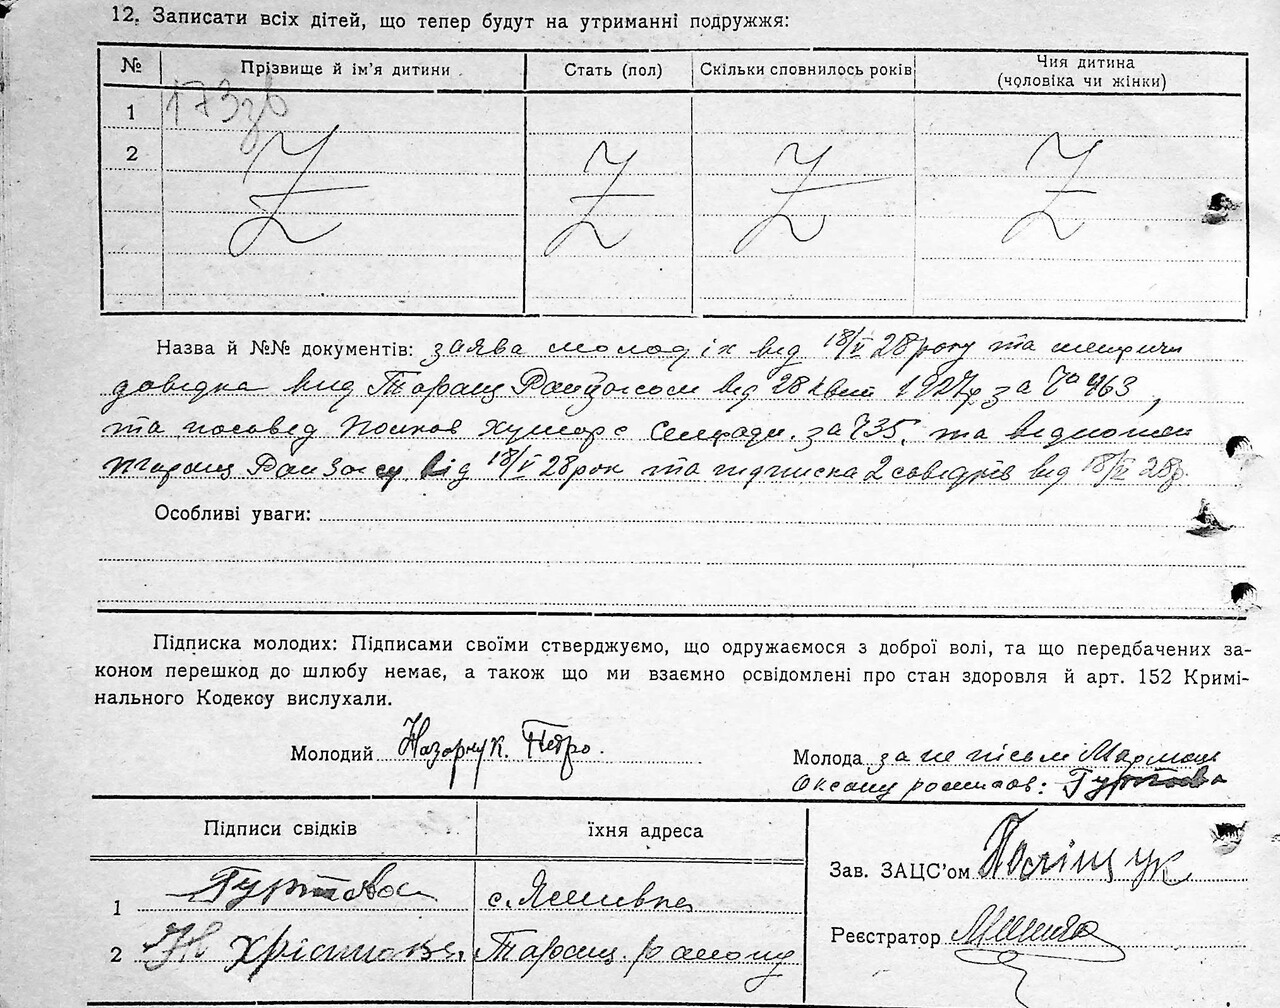 12. Записати всіх дітей, що тепер будут на утриманні подружжя:
№ Прізвище й ім'я дитини Стать (пол) Скільки сповнилось років Чия дитина
(чоловіка чи жінки)
1 173зв
2
Z Z Z Z
Назва й №№ документів: заява молодіх від 18/V 28 року та
довідка від Таращ від 28 квіт 1927р за № 463,
та за № 35, та
Таращ від 18/V 28 рок та підписка 2 свідків від 18/V 28р.
Особливі уваги:
Підписка молодих: Підписами своїми стверджуємо, що одружаємося з доброї волі, та що передбачених за-
коном перешкод до шлюбу немає, а також що ми взаємно освідомлені про стан здоровля й арт. 152 Кримі-
нального Кодексу вислухали.
Молодий Назарчук. Петро.
Молода за не письм
Оксану
Підписи свідків їхня адреса
Зав. ЗАЦС'ом Поліщук
1 с.
2 Таращ. району
Реєстратор